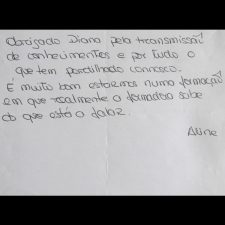 Obrigado Diana pela transmissão
de conhecimentos e por tudo o
que tem partilhado connosco.
É muito bom estarmos numa formação
em que realmente a formadora sabe
do que está a falar.
Aline